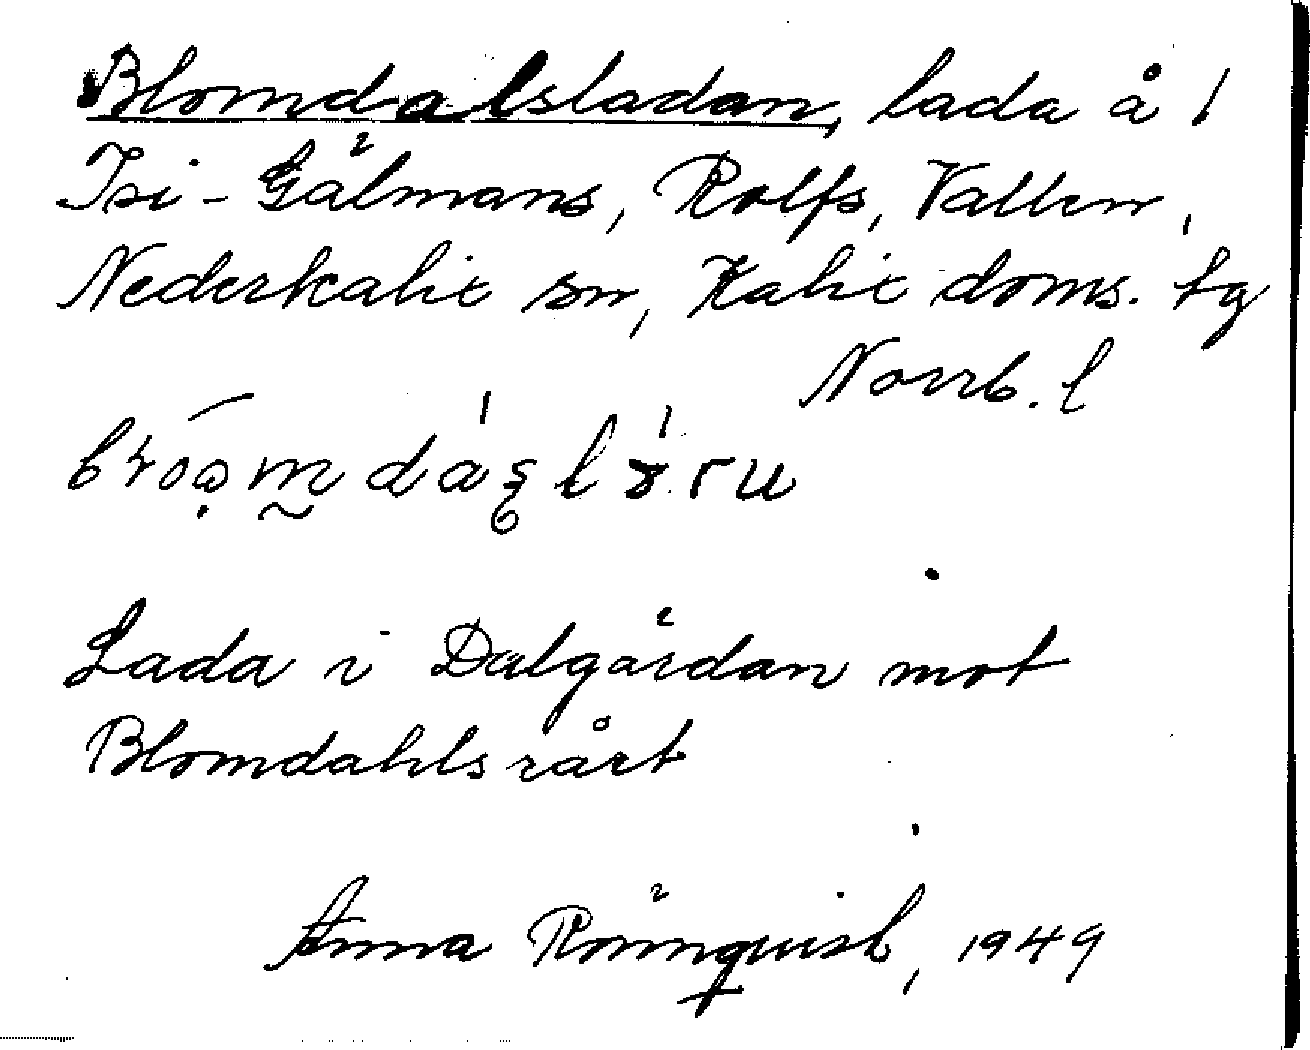 Blomdalsladan, lada å 1
Isi-Gälmans, Rolfs, Vallen,
Nederkalix sn, Kalix doms. tg
Norrb. l
Lada i Dalgärdan mot
Blomdahls rårt
Anna Rönnquist, 1949